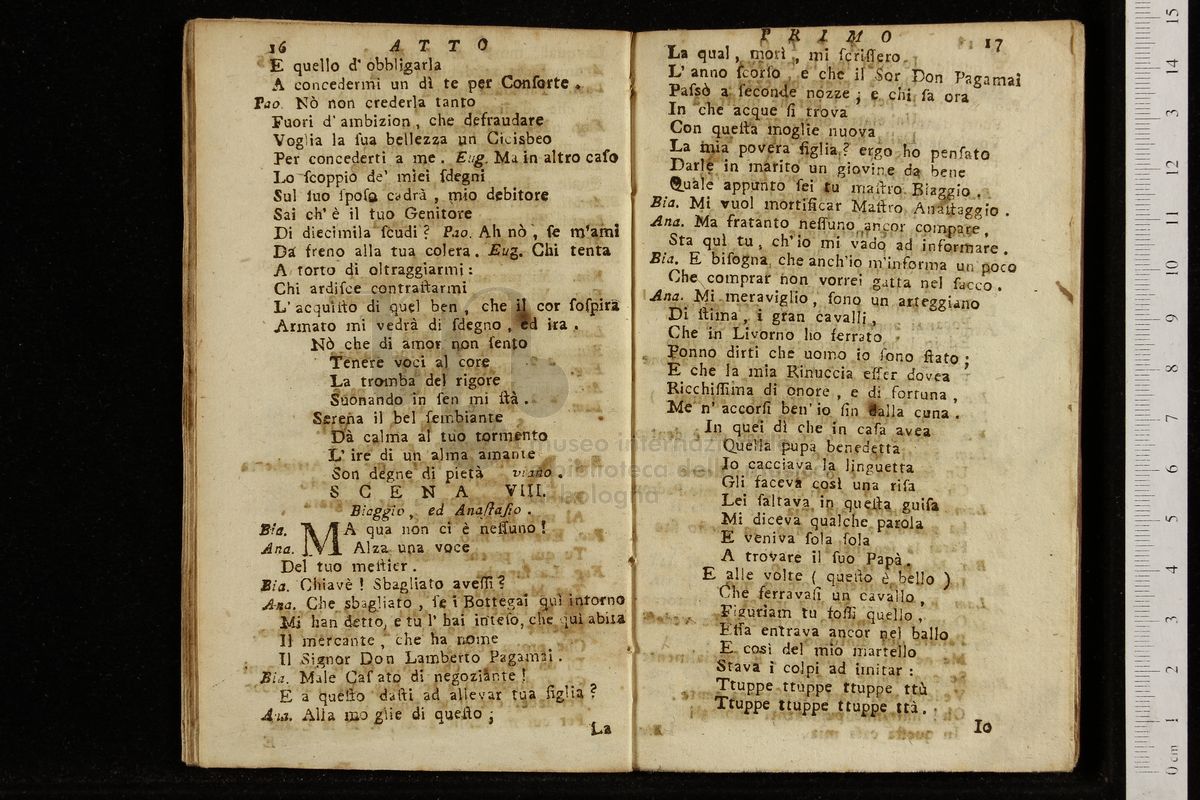 16 ATTO
E quello d' obbligarla
A concedermi un dì te per Conſorte.
Pao. Nò non crederla tanto
Fuori d' ambizion, che defraudare
Voglia la ſua bellezza un Cicisbeo
Per concederti a me. Eug. Ma in altro caſo
Lo ſcoppio de' miei ſdegni
Sul ſuo ſpoſo cadrà, mio debitore
Sai ch' è il tuo Genitore
Di diecimila ſcudi? Pao. Ah nò, ſe m'ami
Da freno alla tua colera. Eug. Chi tenta
A torto di oltraggiarmi:
Chi ardiſce contraſtarmi
L' acquiſto di quel ben, che il cor ſoſpira
Armato mi vedrà di ſdegno, ed ira.
Nò che di amor non ſento
Tenere voci al core
La tromba del rigore
Suonando in ſen mi ſtà.
Serena il bel ſembiante
Dà calma al tuo tormento
L' ire di un alma amante
Son degne di pietà viano.
SCENA VIII.
Biaggio, ed Anaſtaſio.
Bia. MA qua non ci è neſſuno!
Ana. Alza una voce
Del tuo meſtier.
Bia. Chiavè! Sbagliato aveſſi?
Ana. Che sbagliato, ſe i Bottegai quì intorno
Mi han detto, e tu l' hai inteſo, che quì abita
Il mercante, che ha nome
Il Signor Don Lamberto Pagamai.
Bia. Male Caſato di negoziante!
E a queſto daſti ad allevar tua figlia?
Ana. Alla moglie di queſto;
La
PRIMO 17
La qual, morì, mi ſcriſſero
L' anno ſcorſo, e che il Sor Don Pagamai
Paſsò a ſeconde nozze; e chi ſa ora
In che acque ſi trova
Con queſta moglie nuova
La mia povera figlia? ergo ho penſato
Darle in marito un giovine da bene
Quale appunto ſei tu maſtro Biaggio.
Bia. Mi vuol mortificar Maſtro Anaſtaggio.
Ana. Ma fratanto neſſuno ancor compare,
Sta quì tu, ch'io mi vado ad informare.
Bia. E biſogna che anch'io m'informa un poco
Che comprar non vorrei gatta nel ſacco.
Ana. Mi meraviglio, ſono un arteggiano
Di ſtima, i gran cavalli,
Che in Livorno ho ferrato
Ponno dirti che uomo io ſono ſtato;
E che la mia Rinuccia eſſer dovea
Ricchiſſima di onore, e di fortuna,
Me n' accorſi ben' io ſin dalla cuna.
In quei dì che in caſa avea
Quella pupa benedetta
Io cacciava la linguetta
Gli faceva così una riſa
Lei ſaltava in queſta guiſa
Mi diceva qualche parola
E veniva ſola ſola
A trovare il ſuo Papà.
E alle volte (queſto è bello)
Che ferravaſi un cavallo,
Figuriam tu foſſi quello,
Eſſa entrava ancor nel ballo
E così del mio martello
Stava i colpi ad imitar:
Ttuppe ttuppe ttuppe ttù
Ttuppe ttuppe ttuppe ttà.
Io
museo internazionale
biblioteca della musica
bologna